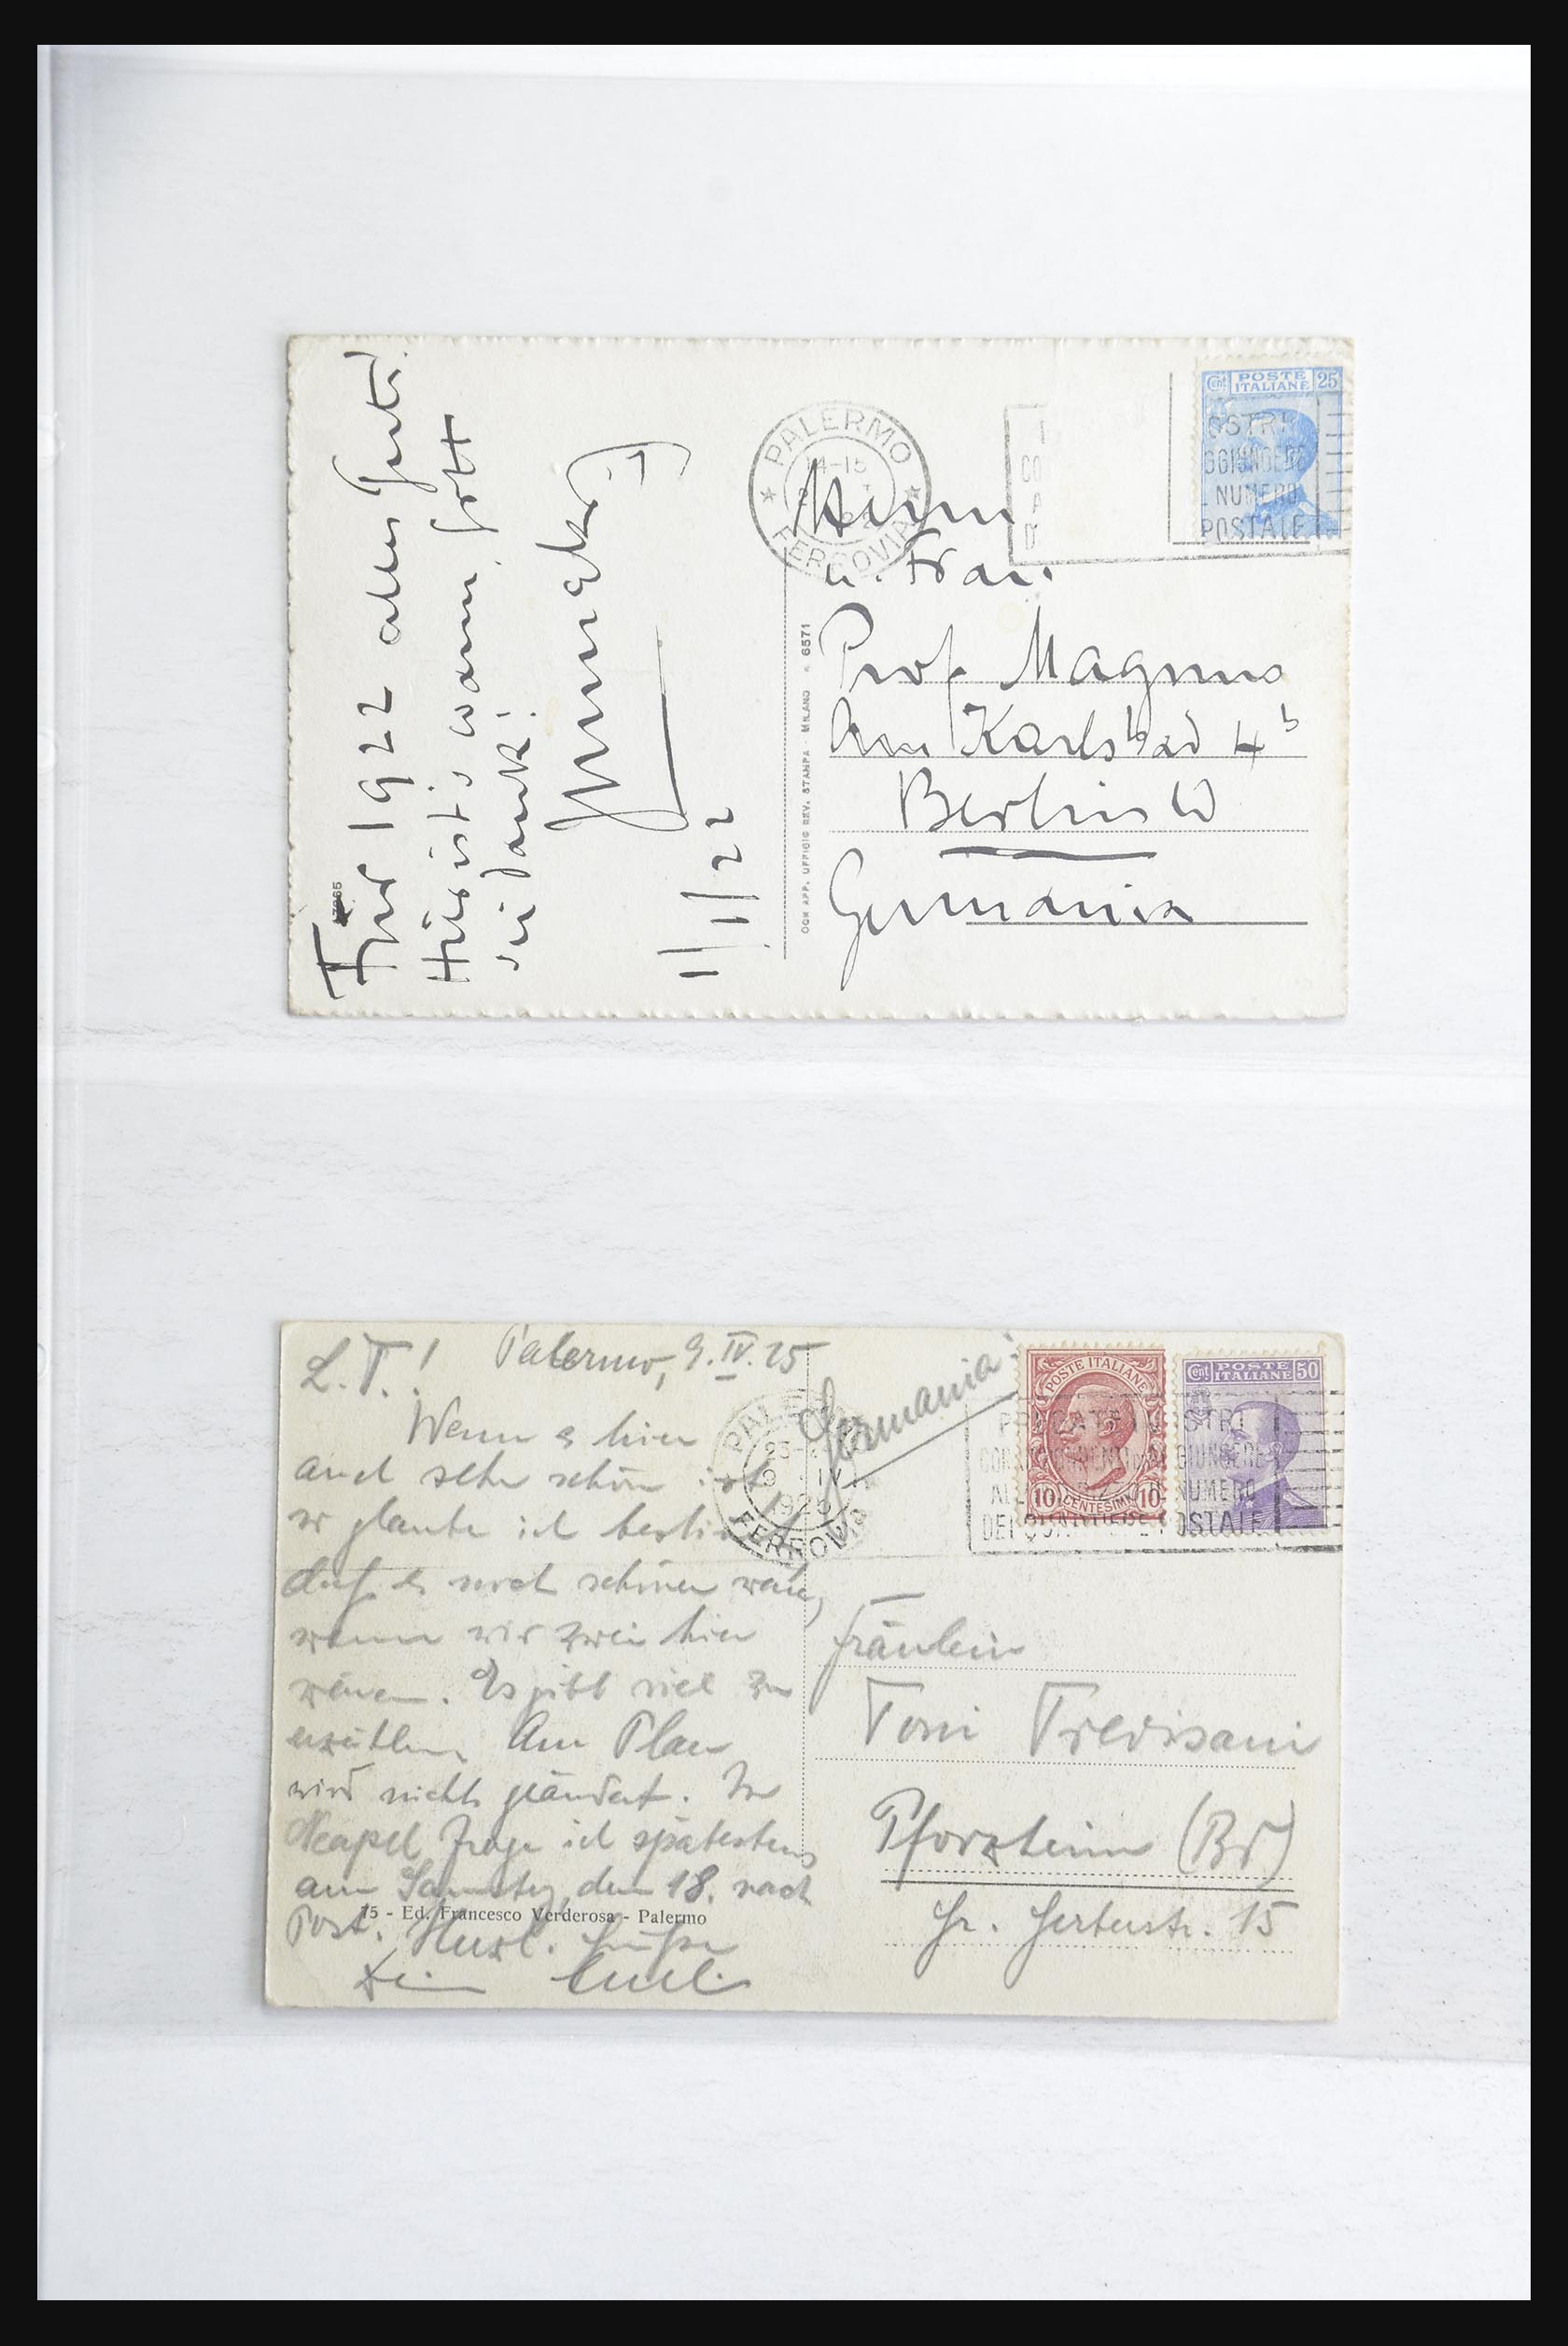 Für 1922 alles Gute!
Hier ist's warm, Gott
sei Dank!
1/1/22
17065
PALERMO
14-15
FERROVIA
OSTRI
GGIUNGERE
NUMERO
POSTALE
Cent POSTE ITALIANE 25
Herrn
u. Frau
Prof Magnus
Am Karlsbad 4b
Berlin W
Germania
MILANO
6571
L. T.! Palermo, 9. IV. 25
Wenn es hier
auch sehr schön ist
so glaube ich
daß es noch schöner wäre,
wenn wir zwei hier
wären. Es gibt viel zu
erzählen. Am Plan
wird nichts geändert. In
Neapel frage ich spätestens
am Samstag, den 18. nach
Post. Herzl. Grüße
Dein
75 - Ed. Francesco Verderosa - Palermo
Germania
PALERMO
9 IV
1925
FERROVIA
POSTE ITALIANE
10 CENTESIMI 10
Cent POSTE ITALIANE 50
Fräulein
Toni Trevisani
Pforzheim (Bd)
15